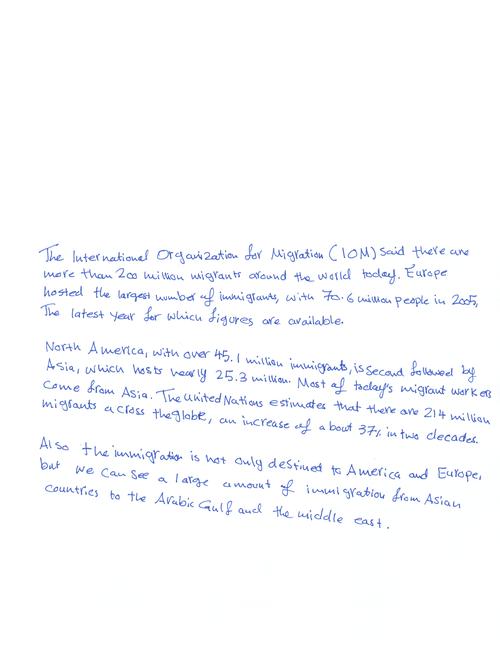 The International Organization for Migration (IOM) Said there are
more than 200 million migrants around the world today. Europe
hosted the largest number of immigrants, with 70.6 million people in 2005,
The latest year for which figures are available.
North America, with over 45.1 million immigrants, is second followed by
Asia, which hosts nearly 25.3 million. Most of today's migrant workers
come from Asia. The United Nations estimates that there are 214 million
migrants across the globe, an increase of about 37% in two decades.
Also the immigration is not only destined to America and Europe,
but we can see a large amount of immigration from Asian
countries to the Arabic Gulf and the middle east.